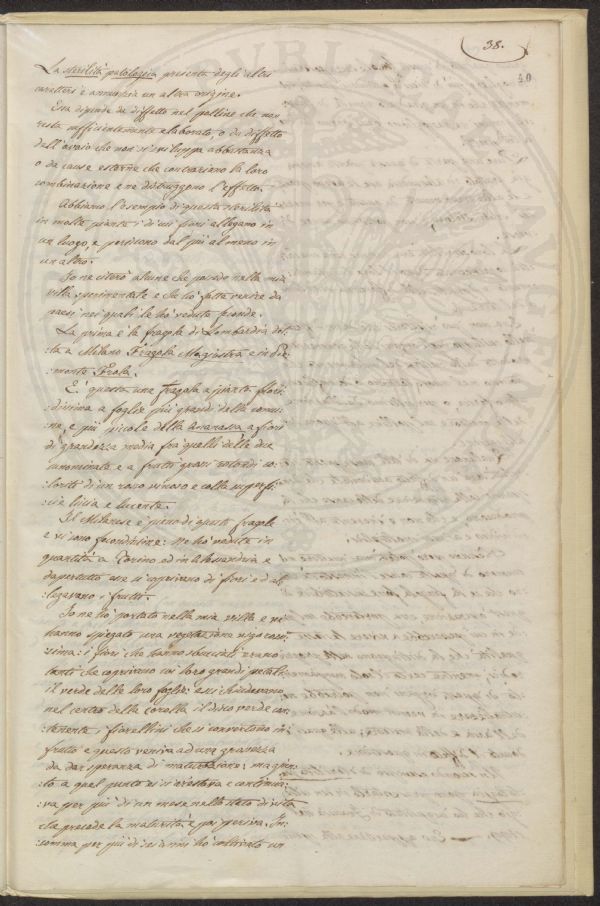 38.
40
La sterilità patologica presenta degli altri
caratteri e annunzia un altra origine.
Essa dipende da diffetto nel polline che non
resta sufficientemente elaborato, o da diffetto
dell'ovaio che non si sviluppa abbastanza
o da cause esterne che contrariano la loro
combinazione e ne distruggono l'effetto.
Abbiamo l'esempio di questa sterilità
in molte piante i di cui fiori allegano in
un luogo, e periscono dal più al meno in
un altro.
Io ne citerò alcune che passo nella mia
villa sperimentate e che hò fatte venire da
paesi nei quali le hò vedute feconde.
La prima è la fragola di Lombardia det-
:ta a Milano Fragola Magiostra e in Pie-
:monte Frola.
E' questa una fragola a pianta flori-
:dissima a foglie più grandi della comu-
:ne, e più piccole della Ananassa, a fiori
di grandezza media frà quelli delle due
innominate e a frutti grossi rotondi co-
loriti di un roseo vinoso e colla superfi-
cie liscia e lucente.
Il Milanese è pieno di queste fragole
e vi sono fecondissime. Ne hò vedute in
quantità a Torino ed in Alessandria e
dapertutto esse si coprivano di fiori ed al-
legavano i frutti.
Io ne hò portato nella mia villa e vi
hanno spiegato una vegetazione vigorosis-
sima: i fiori che hanno sbucciati erano
tanti che coprivano coi loro grandi petali
il verde delle loro foglie: essi chiudevano
nel centro della corolla il disco verde con-
tenente i fiorellini che si convertono in
frutto e questo veniva ad una grossezza
da dar speranza di maturazione; ma giun-
to a quel punto esso si arrestava e continua-
:va per più di un mese nello stato di vita
che precede la maturità e poi periva. In-
somma per più di sei anni hò coltivato un